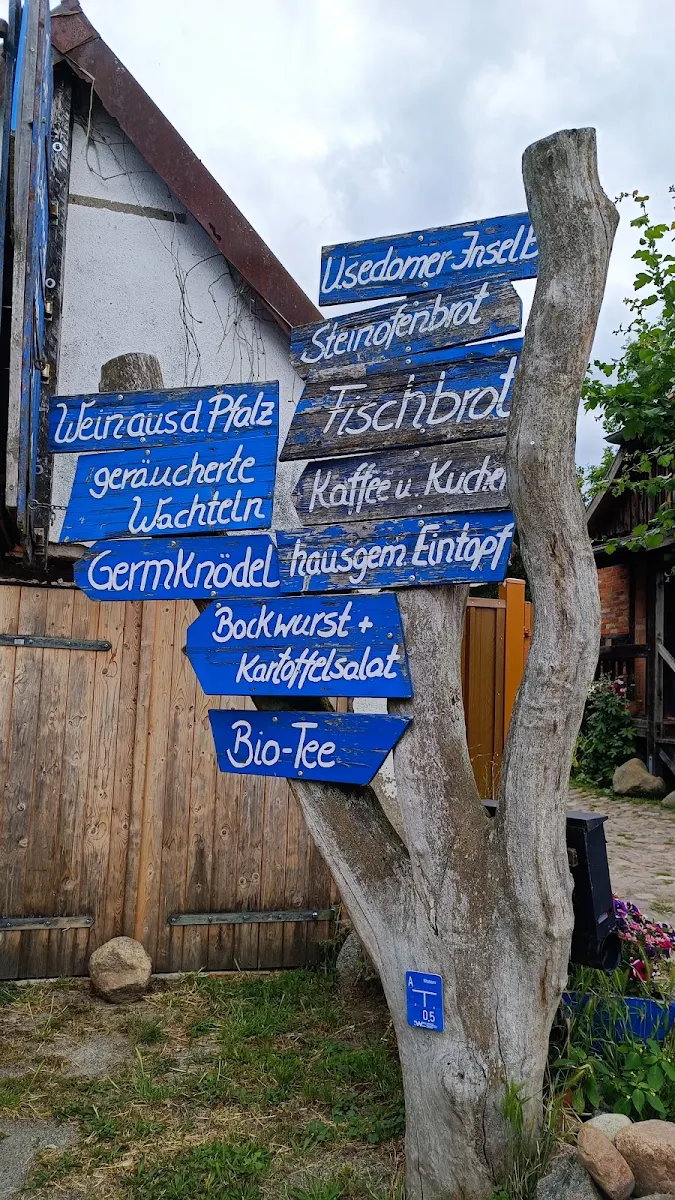 Usedomer-Inselb
Steinofenbrot
Fischbrot
Kaffee u. Kuche
hausgem. Eintopf
Wein aus d. Pfalz
geräucherte
Wachteln
Germknödel
Bockwurst +
Kartoffelsalat
Bio-Tee
A
T
0,5